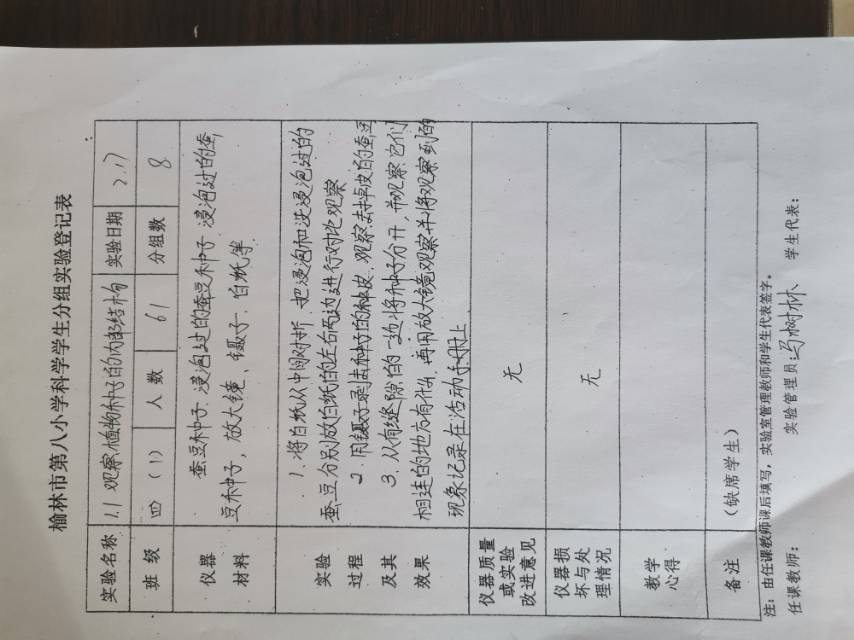 榆林市第八小学科学学生分组实验登记表
实验名称 1.1 观察植物种子的内部结构 实验日期 2.17
班级 四(1) 人数 61 分组数 8
仪器材料
蚕豆种子. 浸泡过的蚕豆种子 浸泡过的蚕
豆种子, 放大镜、镊子. 白纸等
实验过程及其效果
1. 将白纸从中间对折, 把浸泡和没浸泡过的
蚕豆分别放白纸的左右两边进行对比观察
2. 用镊子剥去种子的种皮, 观察去掉皮的蚕豆
3. 从有缝隙的一边将种子分开, 并观察它们
相连的地方有什么, 再用放大镜观察并将观察到的
现象记录在活动手册上
仪器质量或实验改进意见 无
仪器损坏与处理情况 无
教学心得
备注 (缺席学生)
注:由任课教师课后填写,实验室管理教师和学生代表签字。
任课教师: 实验管理员:马树林 学生代表: